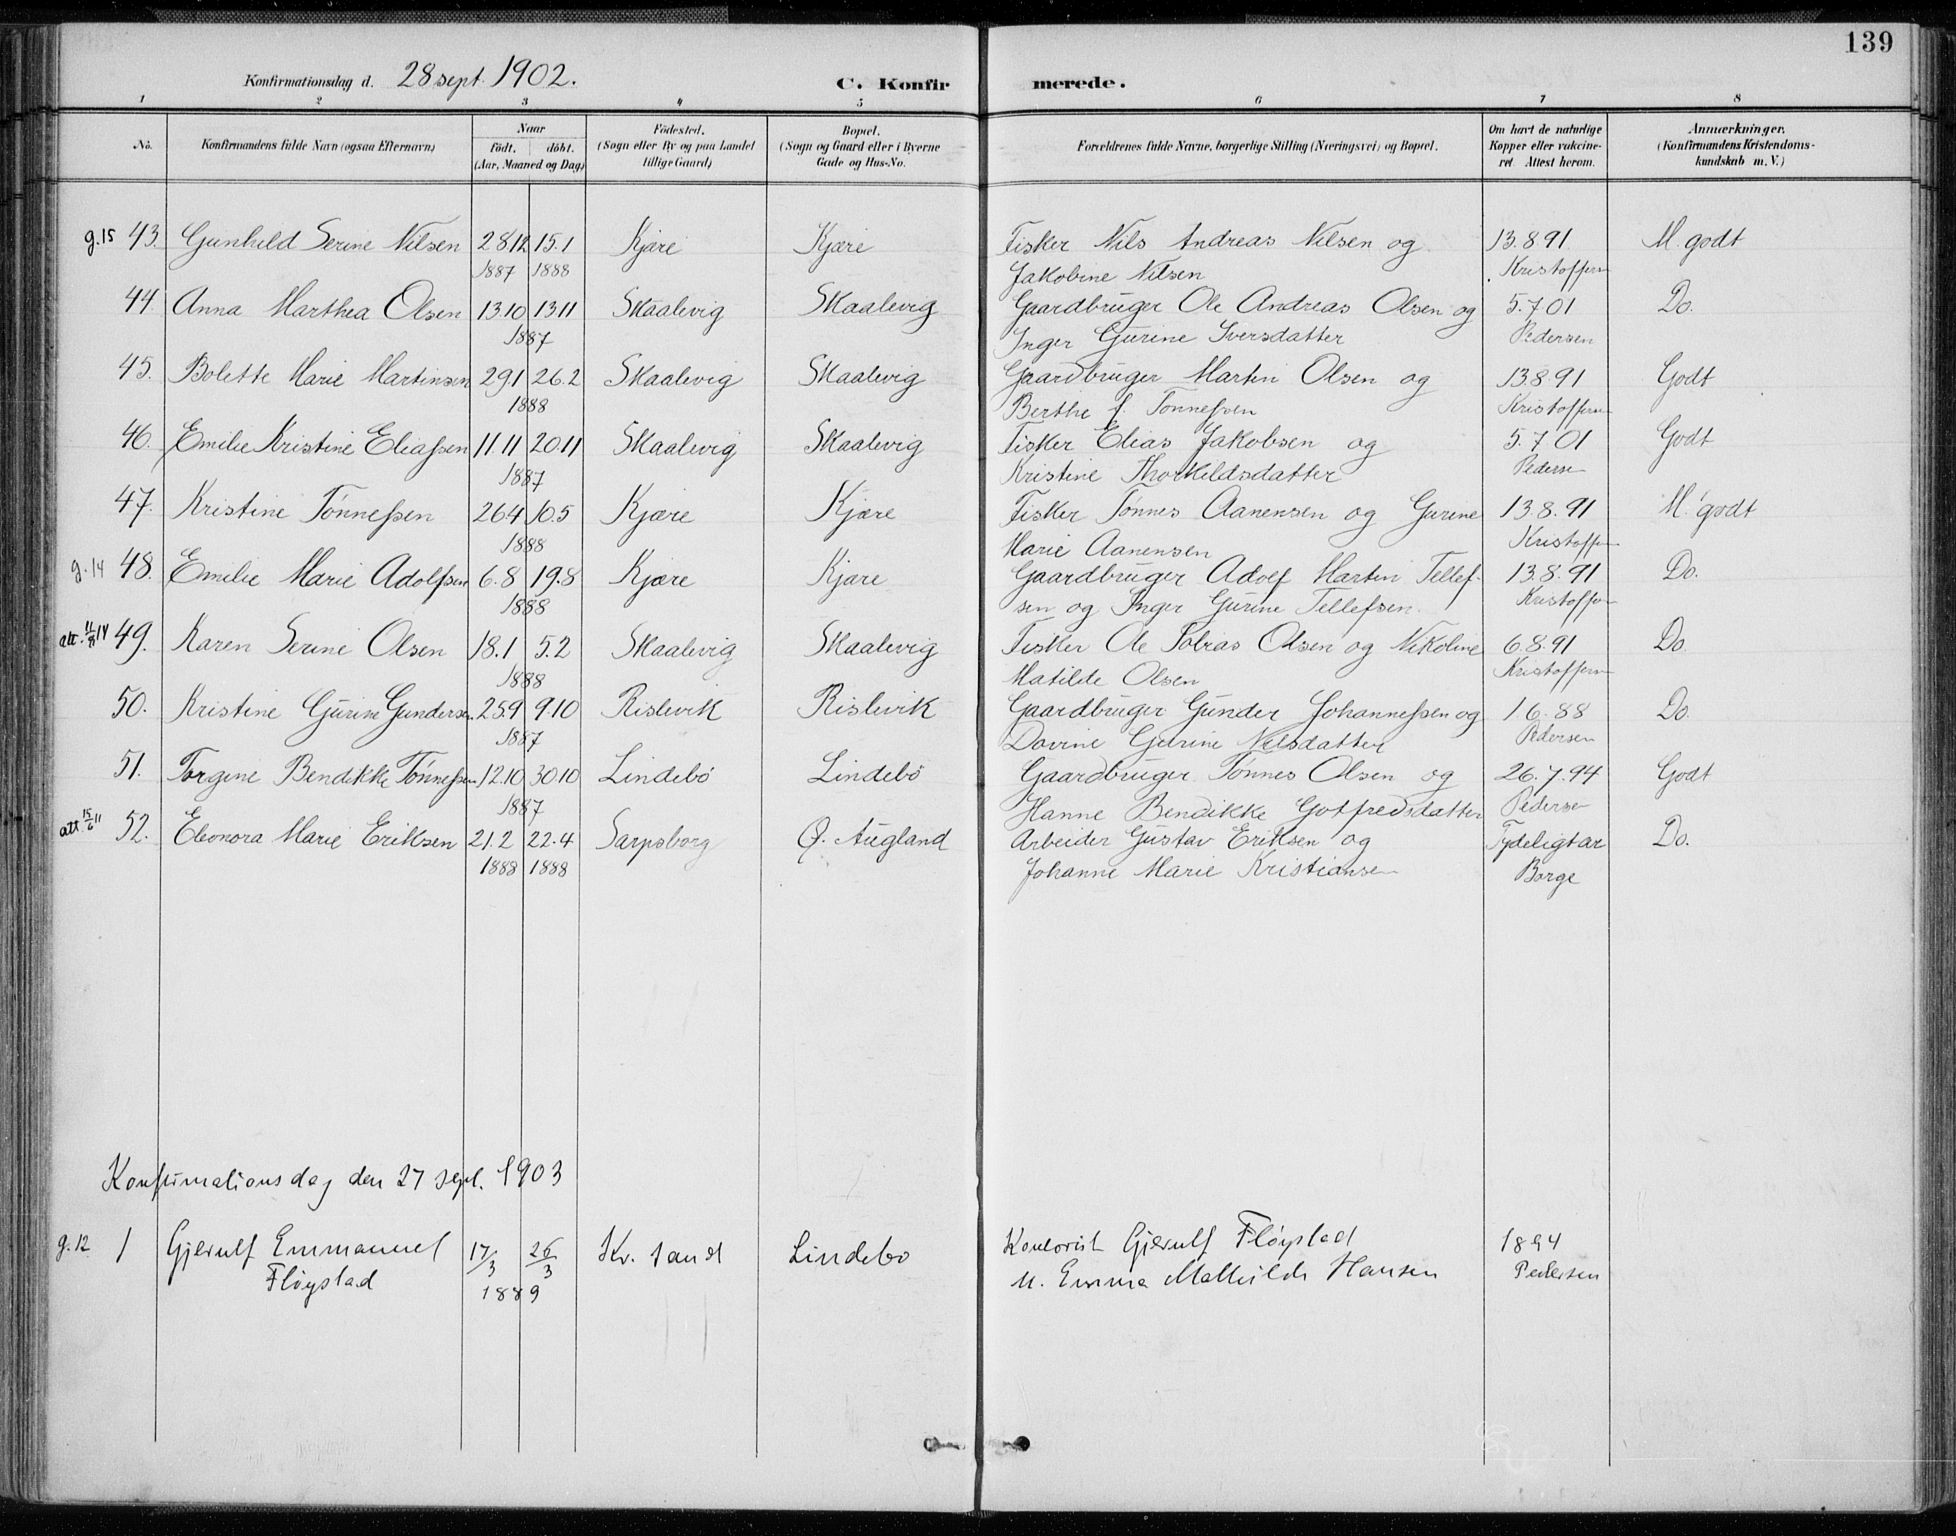 139
Konfirmationsdag d. 28 sept. 1902. C. Konfirmerede.
1 2 3 4 5 6 7 8
No. Konfirmandens fulde Navn (ogsaa Efternavn) Naar födt. döbt. (Aar, Maaned og Dag) Födested. (Sogn eller By og paa Landet tillige Gaard) Bopæl. (Sogn og Gaard eller i Byerne Gade og Hus-No. Forældrenes fulde Navne, borgerlige Stilling (Næringsvei) og Bopæl. Om havt de naturlige Kopper eller vakcineret. Attest herom. Anmærkninger. (Konfirmandens Kristendomskundskab m. V.)
g.15 43. Gunhild Serine Nilsen 28.12 15.1 Kjære Kjære Fisker Nils Andreas Nilsen og 13.8.91 M. godt
1887 1888 Jakobine Nilsen Kristoffersen
44 Anna Marthea Olsen 13.10 13.11 Skaalevig Skaalevig Gaardbruger Ole Andreas Olsen og 5.7.01 Do.
1887 Inger Gurine Iversdatter Pedersen
45. Bolette Marie Martinsen 29.1 26.2 Skaalevig Skaalevig Gaardbruger Martin Olsen og 13.8.91 Godt
1888 Berthe f. Tønneſsen Kristoffersen
46. Emilie Kristine Eliaſsen 11.11 20.11 Skaalevig Skaalevig Fisker Elias Jakobsen og 5.7.01 Godt
1887 Kristine Thorkildsdatter Pederse
47. Kristine Tönneſsen 26.4 10.5 Kjære Kjære Fisker Tønnes Aanensen og Gurine 13.8.91 M. godt
1888 Marie Aanensen Kristoffersen
g.14 48. Emilie Marie Adolfsen 6.8 19.8 Kjære Kjære Gaardbruger Adolf Martin Tellef- 13.8.91 Do.
1888 sen og Inger Gurine Tellefsen. Kristoffersen
att. 11/8 14 49. Karen Serine Olsen 18.1 5.2 Skaalevig Skaalevig Fisker Ole Tobias Olsen og Nikoline 6.8.91 Do.
1888 Matilde Olsen Kristoffersen
50. Kristine Gurine Gundersen 25.9 9.10 Rislevik Rislevik Gaardbruger Gunder Johanneſsen og 1.6.88 Do.
1887 Dorine Gurine Nilsdatter Pedersen
51. Torgine Bendikke Tønneſsen 12.10 30.10 Lindebö Lindebö Gaardbruger Tønnes Olsen og 26.7.94 Godt
1887 Hanne Bendikke Gotfredsdatter Pederse
att 15/6 11 52. Eleonora Marie Eriksen 21.2 22.4 Sarpsborg Ø. Augland Arbeider Gustav Eriksen og Tydeligt ar Do.
1888 1888 Johanne Marie Kristiansen Borge
Konfirmationsdag den 27 sept. 1903
g.12 1 Gjerulf Emmanuel 17/3 26/3 Kr. sand Lindebo Kontorist Gjerulf Fløystad 1894
Fløystad 1889 u. Emma Mathilde Hansen Pedersen